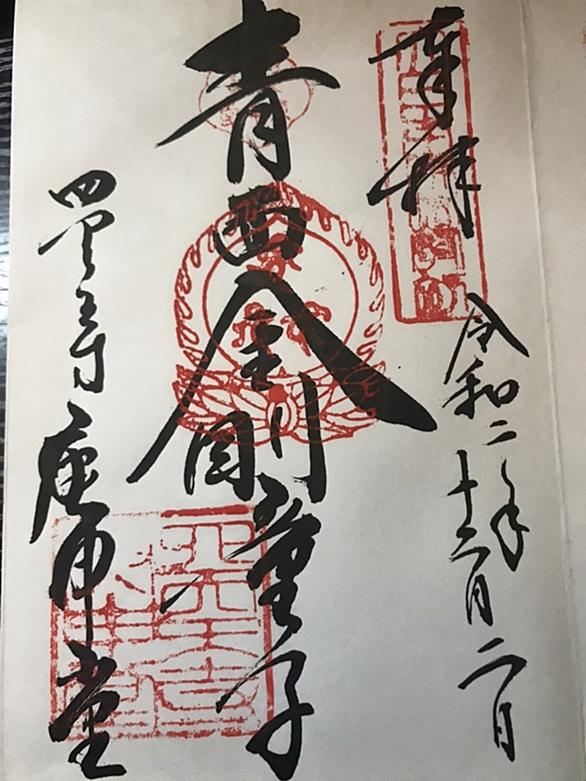 奉拝
令和二年十二月二日
青面金剛童子
四天王寺庚申堂